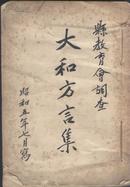 縣教育會調査
大和方言集
昭和五年七月寫